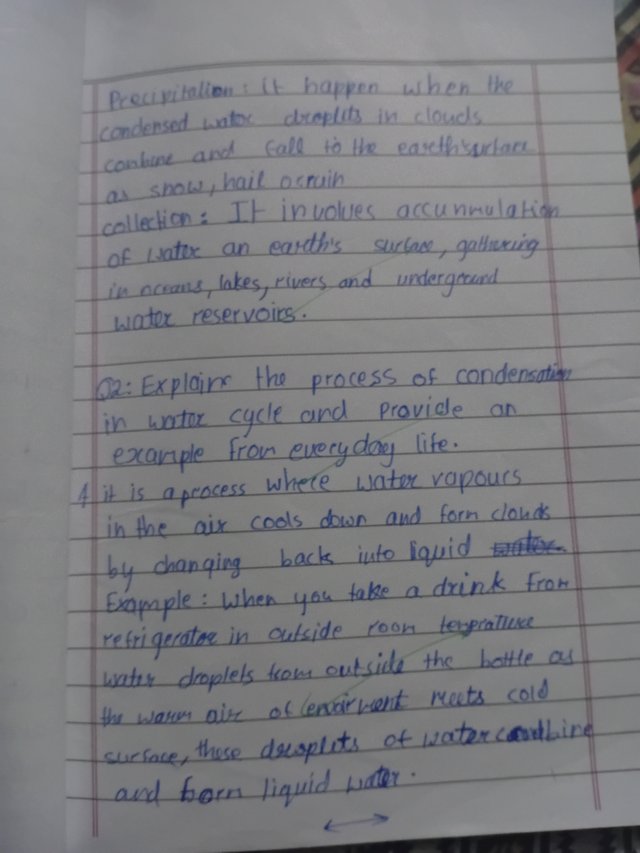 Precipitation: it happen when the
condensed water droplets in clouds
conbine and fall to the earth's surface
as snow, hail or rain
collection: It involves accunmulation
of water an earth's surface, gathering
in oceans, lakes, rivers and underground
water reservoirs.
Q2: Explain the process of condensation
in water cycle and provide an
example from everyday life.
A it is a process where water vapours
in the air cools down and form clouds
by changing back into liquid water
Example: When you take a drink from
refrigerator in outside room temprature
water droplets from outside the bottle as
the warm air of envirment meets cold
surface, these droplets of water combine
and form liquid water.